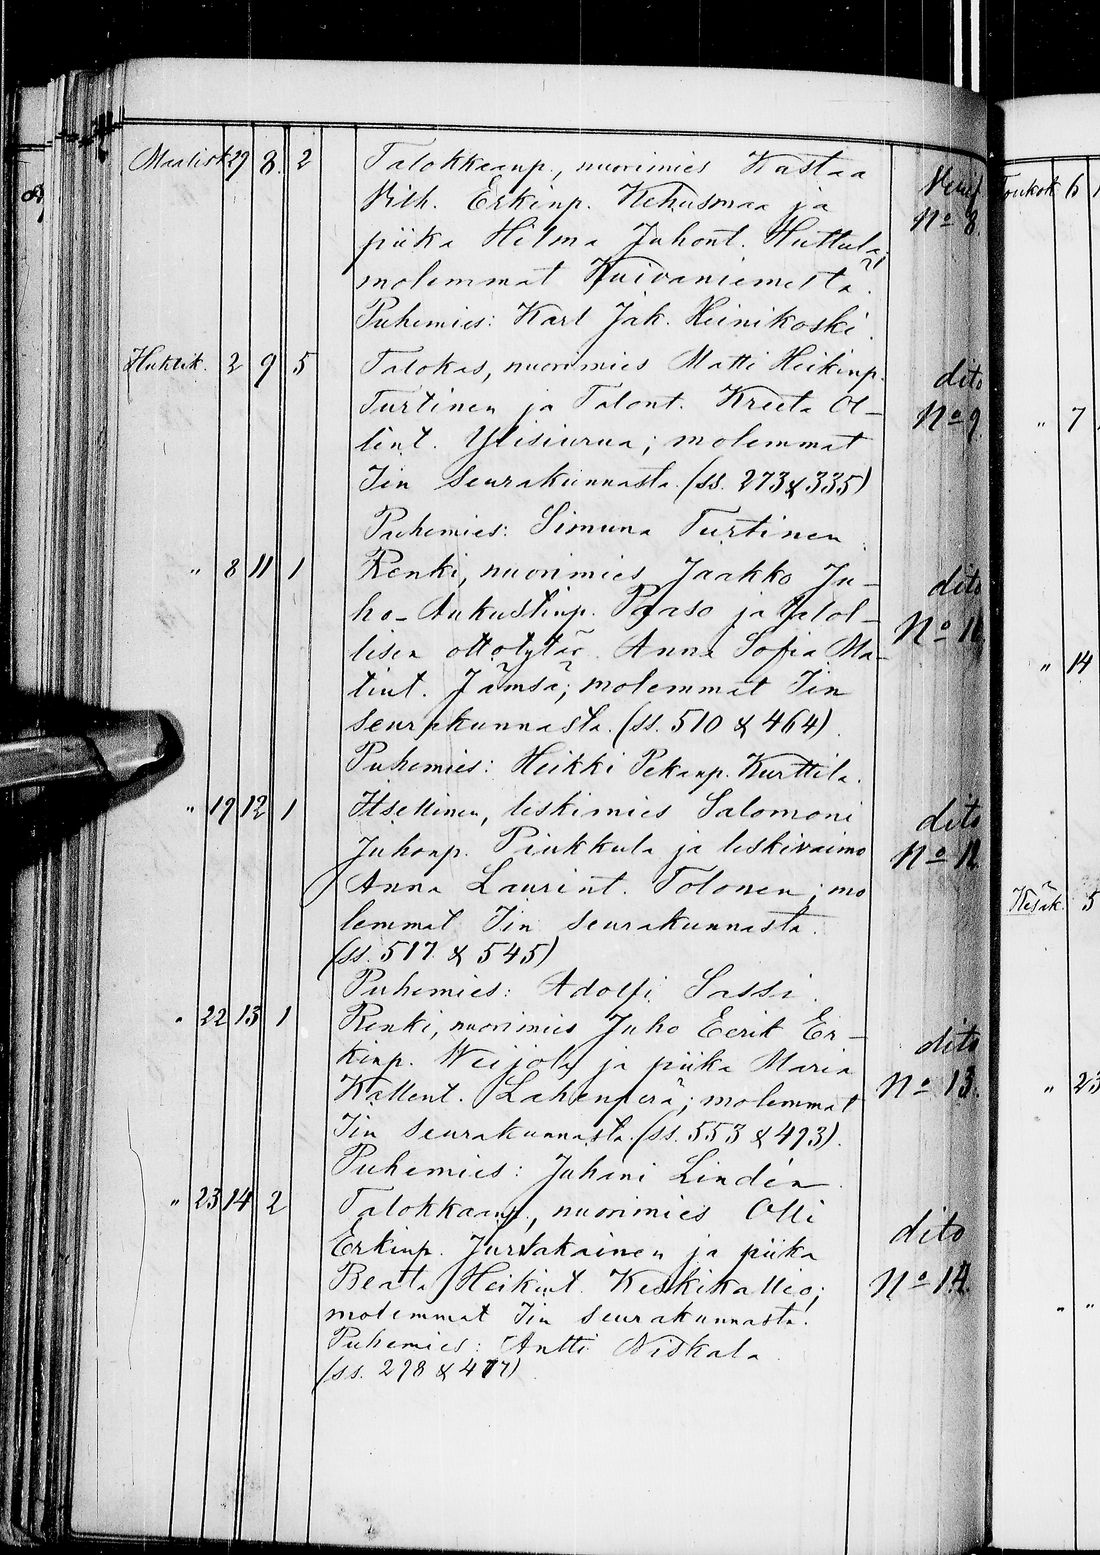 Maalisk. 29 8. 2 Talokkaanp., nuorimies Kustaa Verif.
Vilh. Erkinp. Kehusmaa ja No 8.
piika Hilma Juhont. Huttula;
molemmat Kuivaniemeltä.
Puhemies: Karl Jak. Heinikoski.
Huhtik. 2 9 5 Talokas, nuorimies Matti Heikinp. dito
Turtinen ja Talont. Kreeta Ol- No 9.
lint. Ylisiurua; molemmat
Iin seurakunnasta. (ss. 273 & 335)
Puhemies: Simuna Turtinen.
" 8 11 1 Renki, nuorimies Jaakko Ju- dito
ho-Aukustinp. Paaso ja talol- No 11.
lisen ottotytär Anna Sofia Ma-
tint. Jämsä; molemmat Iin
seurakunnasta. (ss. 510 & 464).
Puhemies: Heikki Pekanp. Kurttila.
" 19 12 1 Itsellinen, leskimies Salomoni dito
Juhonp. Piukkula ja leskivaimo No 12.
Anna Laurint. Tolonen; mo
lemmat Iin seurakunnasta.
(ss. 517 & 545)
Puhemies: Adolfi Sassi.
" 22 13 1 Renki, nuorimies Juho Eerik Er- dito
kinp. Weijola ja piika Maria No 13.
Kallent. Lahenperä; molemmat
Iin seurakunnasta. (ss. 553 & 493).
Puhemies: Juhani Lindén.
" 23 14 2 Talokkaanp., nuorimies Olli dito
Erkinp. Jurvakainen ja piika
Beata Heikint. Keskikallio; No 14.
molemmat Iin seurakunnasta.
Puhemies: Antti
(ss. 298 & 477).
Toukok. 6
" 7
" 14
Kesäk. 5
" 23
" "